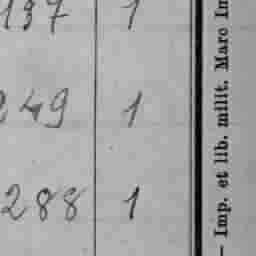 137 1
249 1
288 1
— Imp. et lib. milit. Marc Im